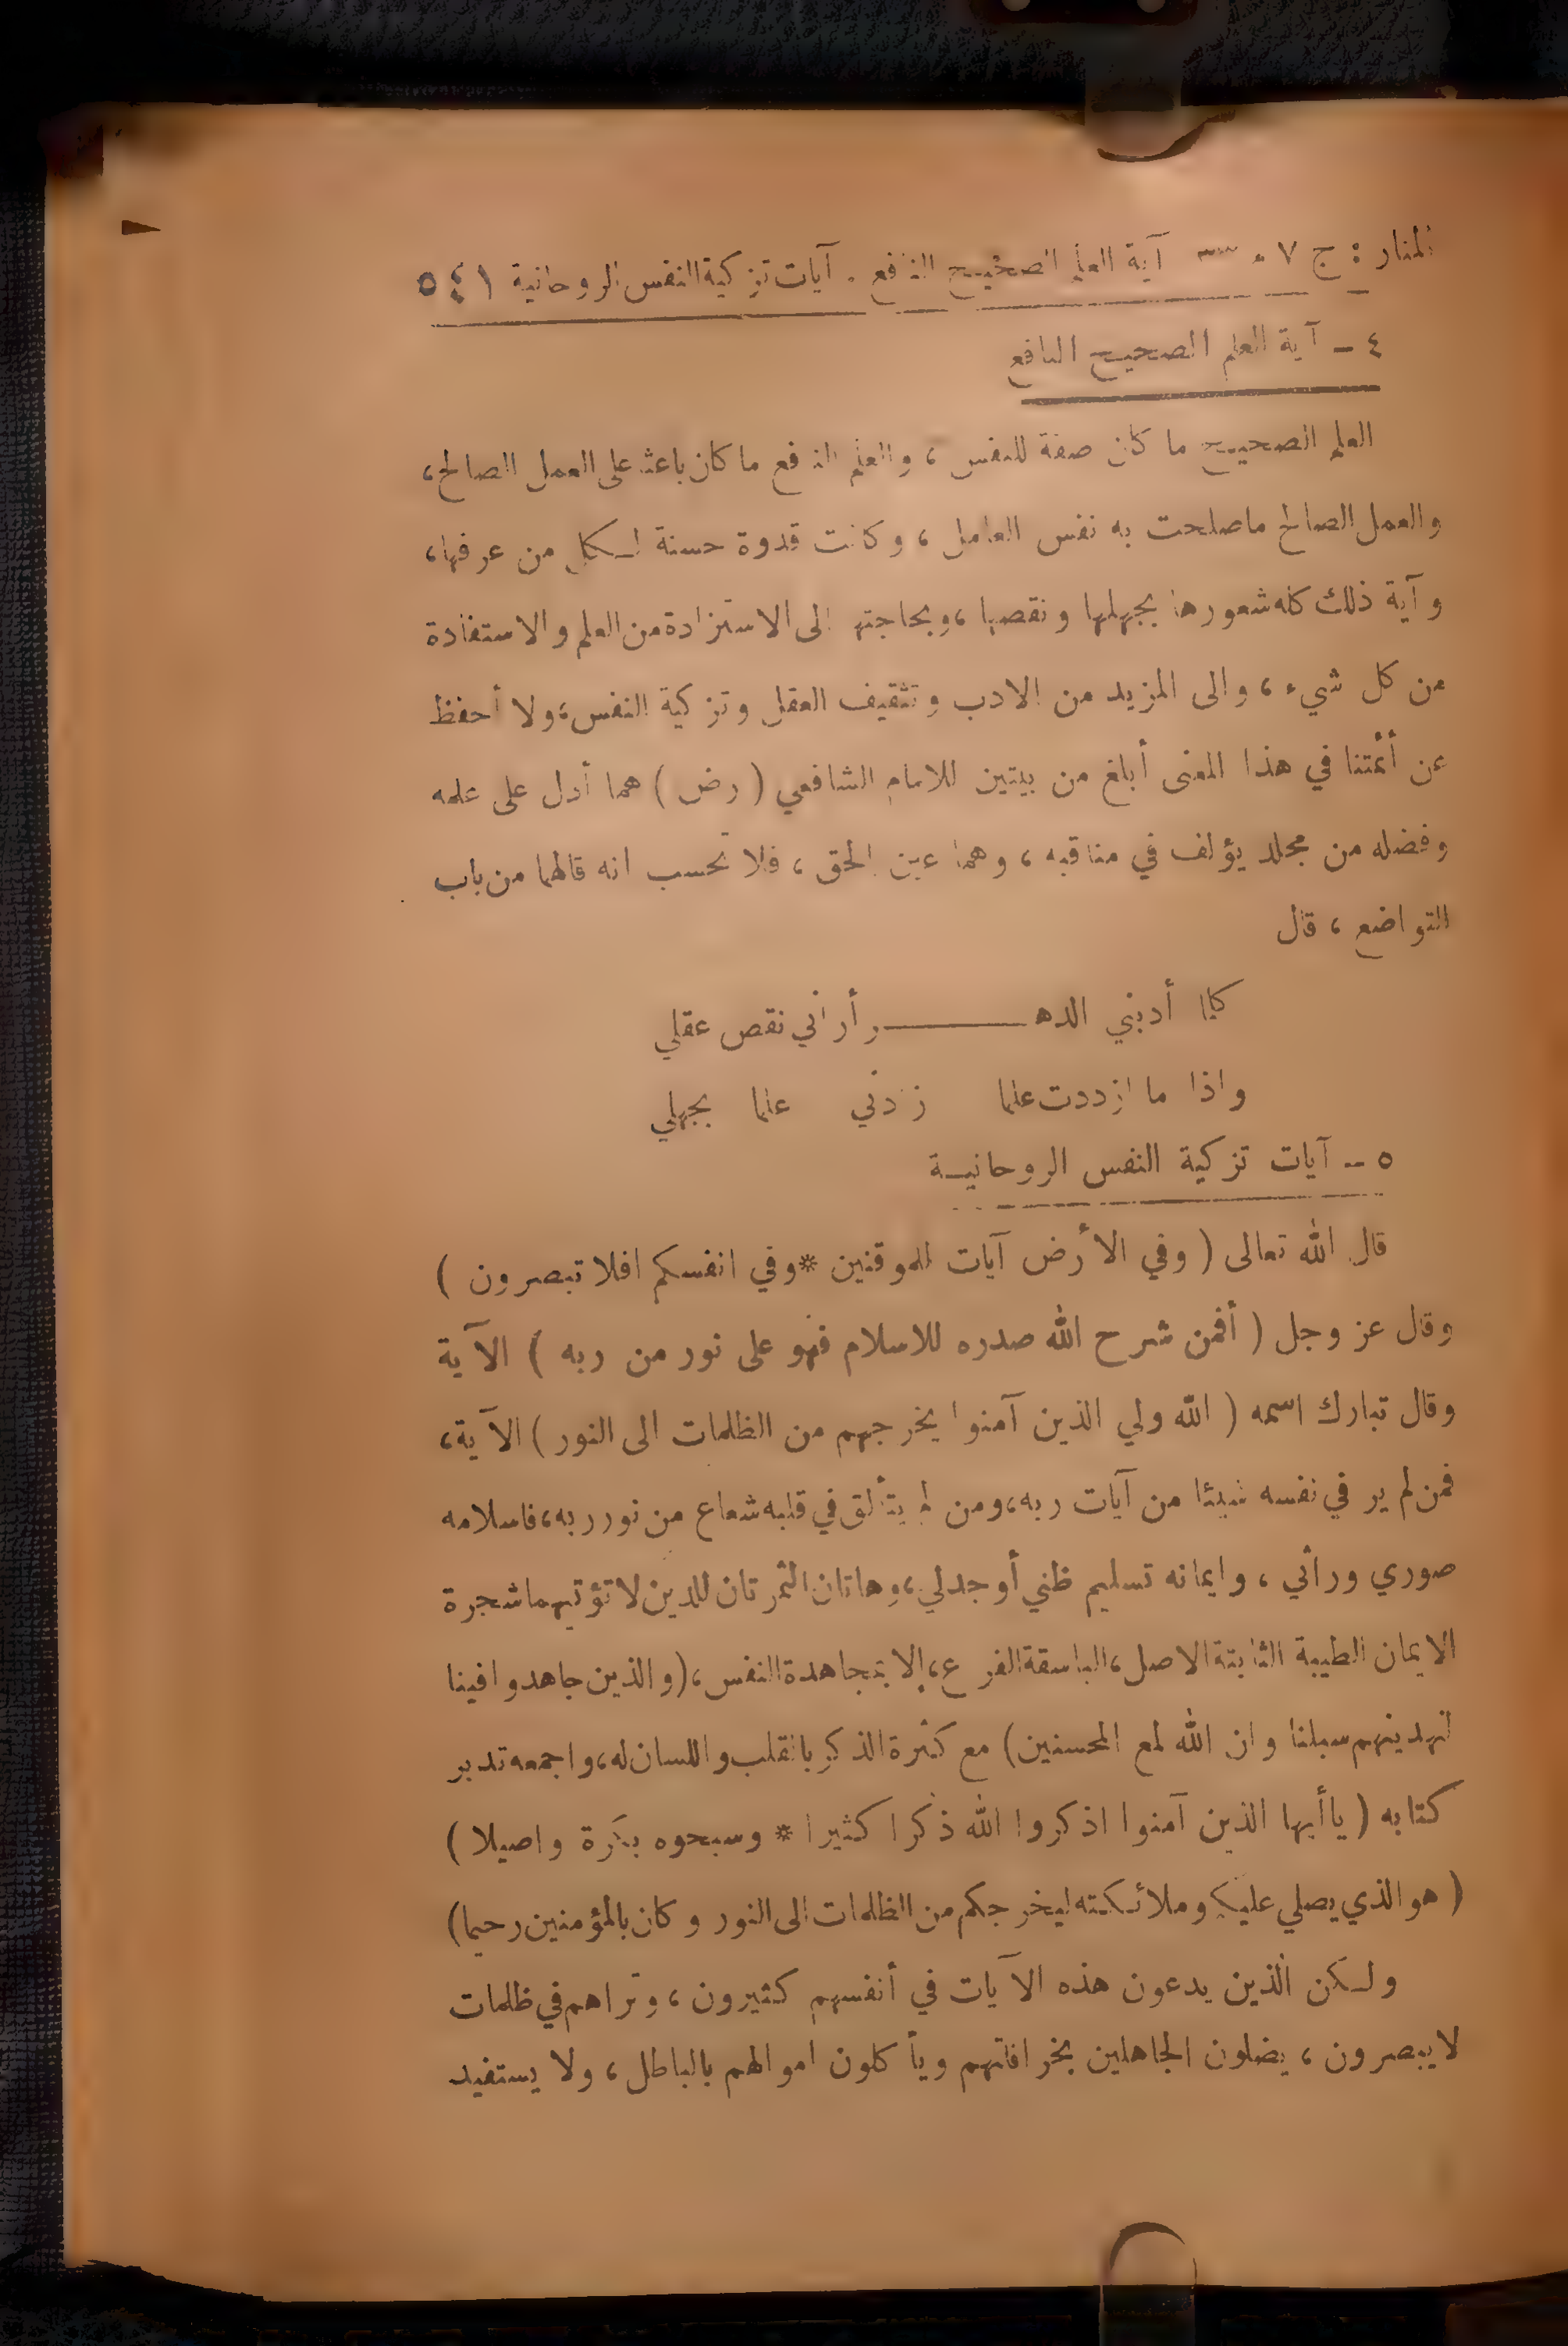 المنار : ج ٧ آية العلم الصحيح النافع . آيات تزكية النفس الروحانية ٥٤١
٤ – آية العلم الصحيح النافع
العلم الصحيح ما كان صفة للنفس ، والعلم النافع ما كان باعثا على العمل الصالح ،
والعمل الصالح ما صلحت به نفس العامل ، وكانت قدوة حسنة لكل من عرفها ،
وآية ذلك كله شعورها بجهلها ونقصها ، وبحاجتها الى الاستزادة من العلم والاستفادة
من كل شيء ، والى المزيد من الادب وتثقيف العقل وتزكية النفس ، ولا أحفظ
عن أئمتنا في هذا المعنى أبلغ من بيتين للامام الشافعي ( رض ) هما أدل على علمه
وفضله من مجلد يؤلف في مناقبه ، وهما عين الحق ، فلا تحسب انه قالهما من باب
التواضع ، قال
كلما أدبني الدهـــر أراني نقص عقلي
واذا ما ازددت علما زادني علما بجهلي
٥ – آيات تزكية النفس الروحانية
قال الله تعالى ( وفي الأرض آيات للموقنين * وفي انفسكم افلا تبصرون )
وقال عز وجل ( أفمن شرح الله صدره للاسلام فهو على نور من ربه ) الآية
وقال تبارك اسمه ( الله ولي الذين آمنوا يخرجهم من الظلمات الى النور ) الآية ،
فمن لم ير في نفسه شيئا من آيات ربه ، ومن لم يتألق في قلبه شعاع من نور ربه ، فاسلامه
صوري وراثي ، وايمانه تسليم ظني أو جدلي ، وهاتان الثمرتان للدين لا تؤتيهما شجرة
الايمان الطيبة الثابتة الاصل ، الباسقة الفرع ، إلا بمجاهدة النفس ، ( والذين جاهدوا فينا
لنهدينهم سبلنا وان الله لمع المحسنين ) مع كثرة الذكر بالقلب واللسان له ، واجمعه تدبر
كتابه ( يا أيها الذين آمنوا اذكروا الله ذكرا كثيرا * وسبحوه بكرة واصيلا )
( هو الذي يصلي عليكم وملائكته ليخرجكم من الظلمات الى النور وكان بالمؤمنين رحيما )
ولكن الذين يدعون هذه الآيات في أنفسهم كثيرون ، وتراهم في ظلمات
لا يبصرون ، يضلون الجاهلين بخرافاتهم ويأكلون اموالهم بالباطل ، ولا يستفيد